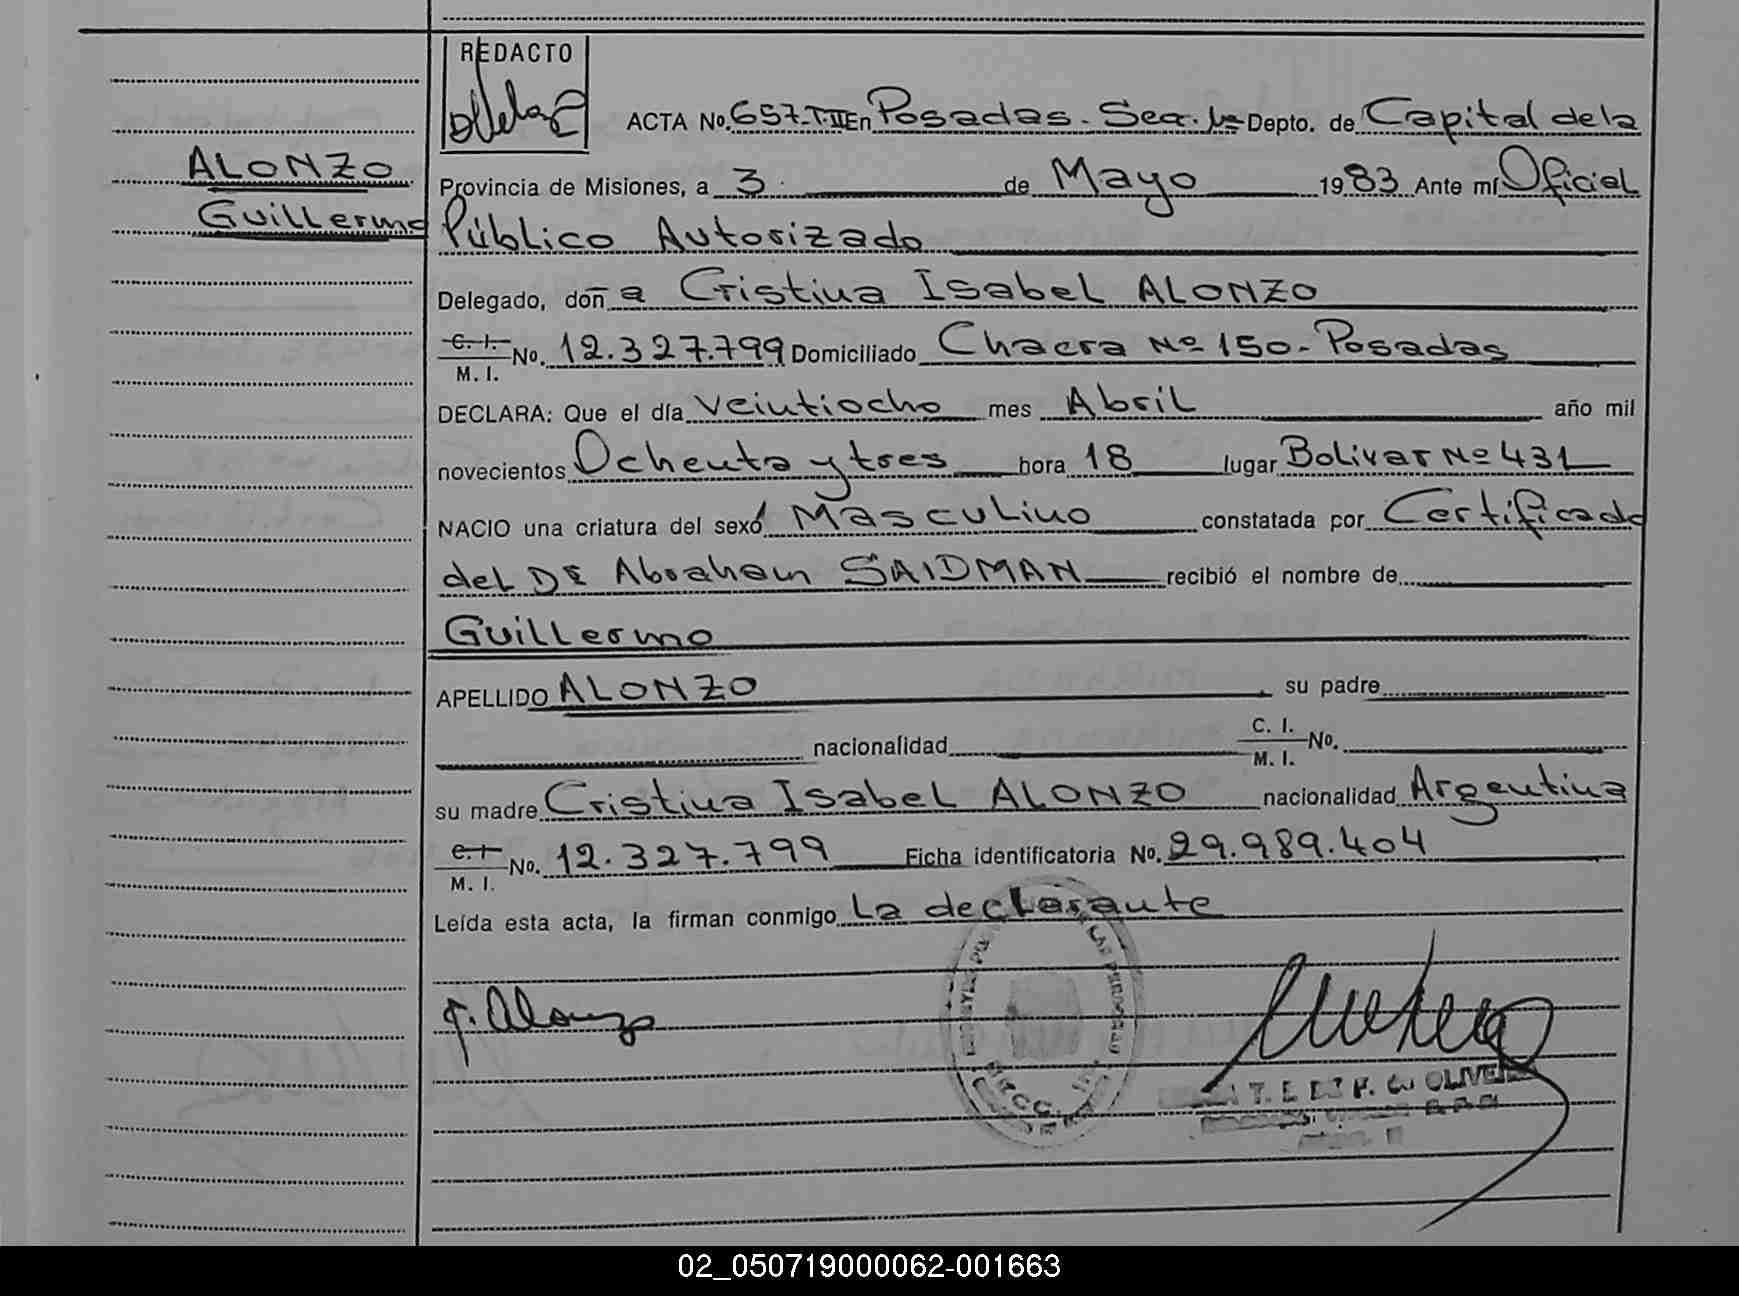 REDACTO
ACTA No. 657. T. II En Posadas. Sec. 1ª Depto. de Capital de la
ALONZO
Guillermo
Provincia de Misiones, a 3 de Mayo 1983 Ante mí Oficial
Público Autorizado
Delegado, doña Cristina Isabel ALONZO
C. I.
M. I. No. 12.327.799 Domiciliado Chacra Nº 150 - Posadas
DECLARA: Que el día Veintiocho mes Abril año mil
novecientos Ochenta y tres hora 18 lugar Bolivar Nº 431
NACIO una criatura del sexo Masculino constatada por Certificado
del Dr Abraham SAIDMAN recibió el nombre de
Guillermo
APELLIDO ALONZO su padre
nacionalidad C. I.
M. I. No.
su madre Cristina Isabel ALONZO nacionalidad Argentina
C. I.
M. I. No. 12.327.799 Ficha identificatoria No. 29.989.404
Leída esta acta, la firman conmigo La declarante
Alonzo
OLIVEIRA
02_050719000062-001663